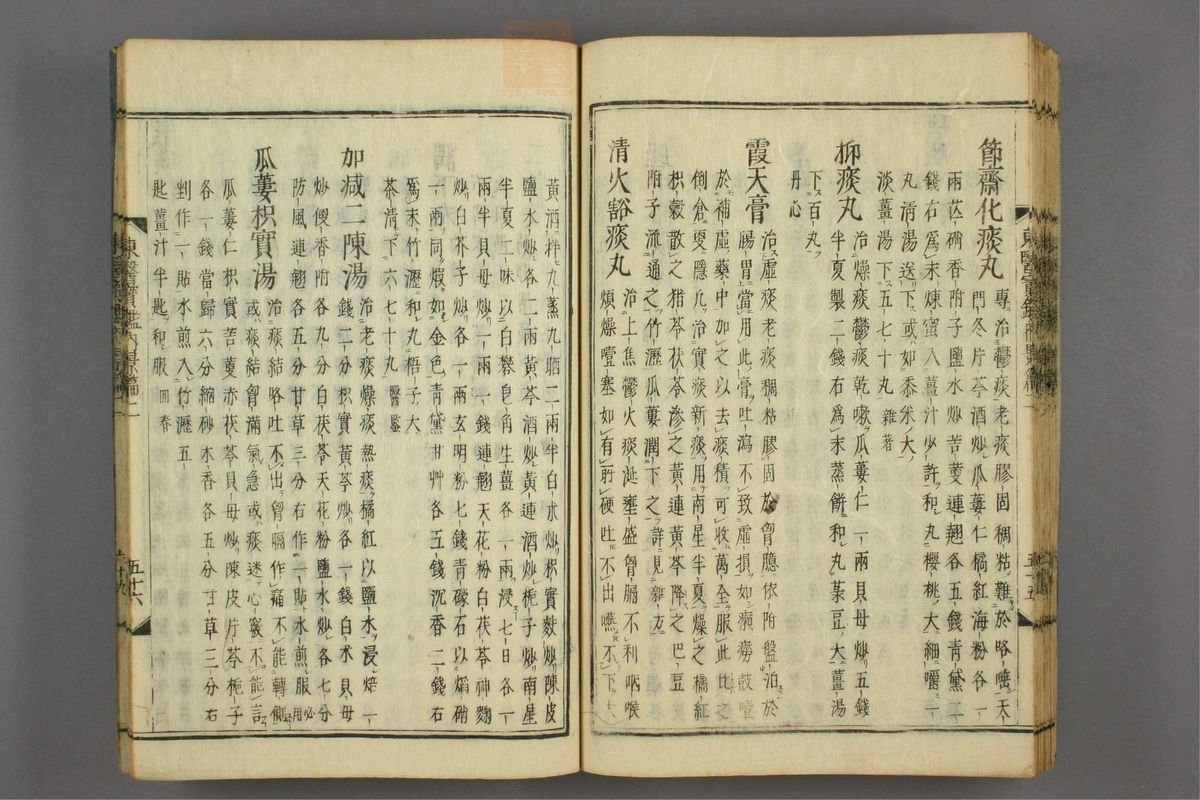 節齋化痰丸 專治鬱痰老痰膠固稠粘難於咯唾天
門冬片芩酒炒瓜蔞仁橘紅海粉各一
兩芒硝香附子鹽水炒苦莄連翹各五錢青黛二
錢右爲末煉蜜入薑汁少許和丸櫻桃大細嚼一
丸淸湯送下或如黍米大
淡薑湯下五七十丸 雜著
抑痰丸 治燥痰鬱痰乾嗽瓜蔞仁一兩貝母炒五錢
半夏製二錢右爲末蒸餠和丸菉豆大薑湯
下百丸
丹心
霞天膏 治虛痰老痰稠粘膠固於胷臆依附盤泊於
腸胃當用此膏吐瀉不致虛損如癩癆鼓噎
於補虛藥中加之以去痰積可收萬全服此比之
倒倉更隱凡治實痰新痰用南星半夏燥之橘紅
枳殼散之猪苓茯苓滲之黃連黃芩降之巴豆
附子流通之竹瀝瓜蔞潤下之詳見雜方
清火豁痰丸 治上焦鬱火痰涎壅盛胷膈不利咽喉
煩燥噎塞如有所硬吐不出嚥不下大
黃酒拌九蒸九晒二兩半白朮炒枳實麩炒陳皮
鹽水炒各二兩黃芩酒炒黃連酒炒梔子炒南星
半夏二味以白礬皂角生薑各一兩浸七日各一
兩半貝母炒一兩一錢連翹天花粉白茯苓神麴
炒白芥子炒各一兩玄明粉七錢青礞石以焰硝
一兩同煆如金色青黛甘艸各五錢沉香二錢右
爲末竹瀝和丸梧子大
茶清下六七十丸 醫鑒
加減二陳湯 治老痰燥痰熱痰橘紅以鹽水浸焙一
錢二分枳實黃芩炒各一錢白朮貝母
炒便香附各九分白茯苓天花粉鹽水炒各七分
防風連翹各五分甘草三分右作一貼水煎服 必用
瓜蔞枳實湯 治痰結咯吐不出胷膈作痛不能轉側
或痰結胷滿氣急或痰迷心竅不能言
瓜蔞仁枳實苦莄赤茯苓貝母炒陳皮片芩梔子
各一錢當歸六分縮砂木香各五分甘草三分右
剉作一貼水煎入竹瀝五
匙薑汁半匙和服 回春
東醫寶鑑內景篇二
五十六